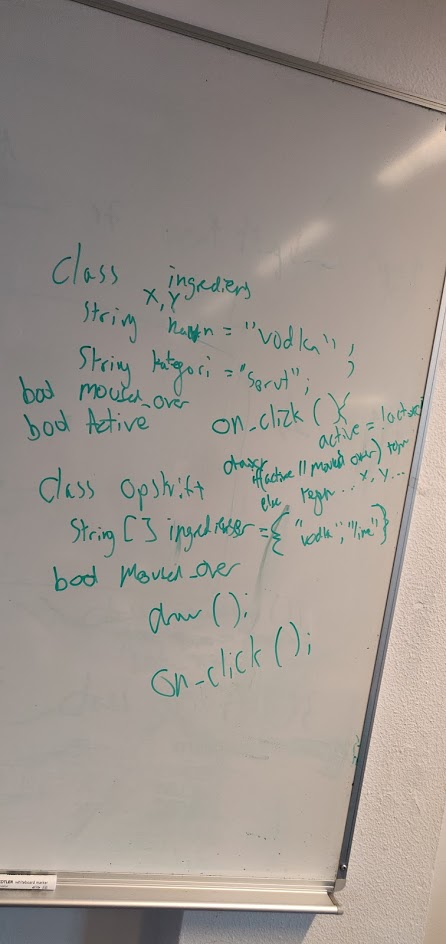 Class ingrediens
x, y
String navn = "vodka";
String kategori = "Sprut";
bool moused_over
bool Active
on_click (){
active = !active
draw
if(active || moused over) regn
else regn... x, y...
Class Opskrift
String [] ingredienser = { "vodka", "lime" }
bool moused_over
draw ();
on_click ();
whiteboard marker